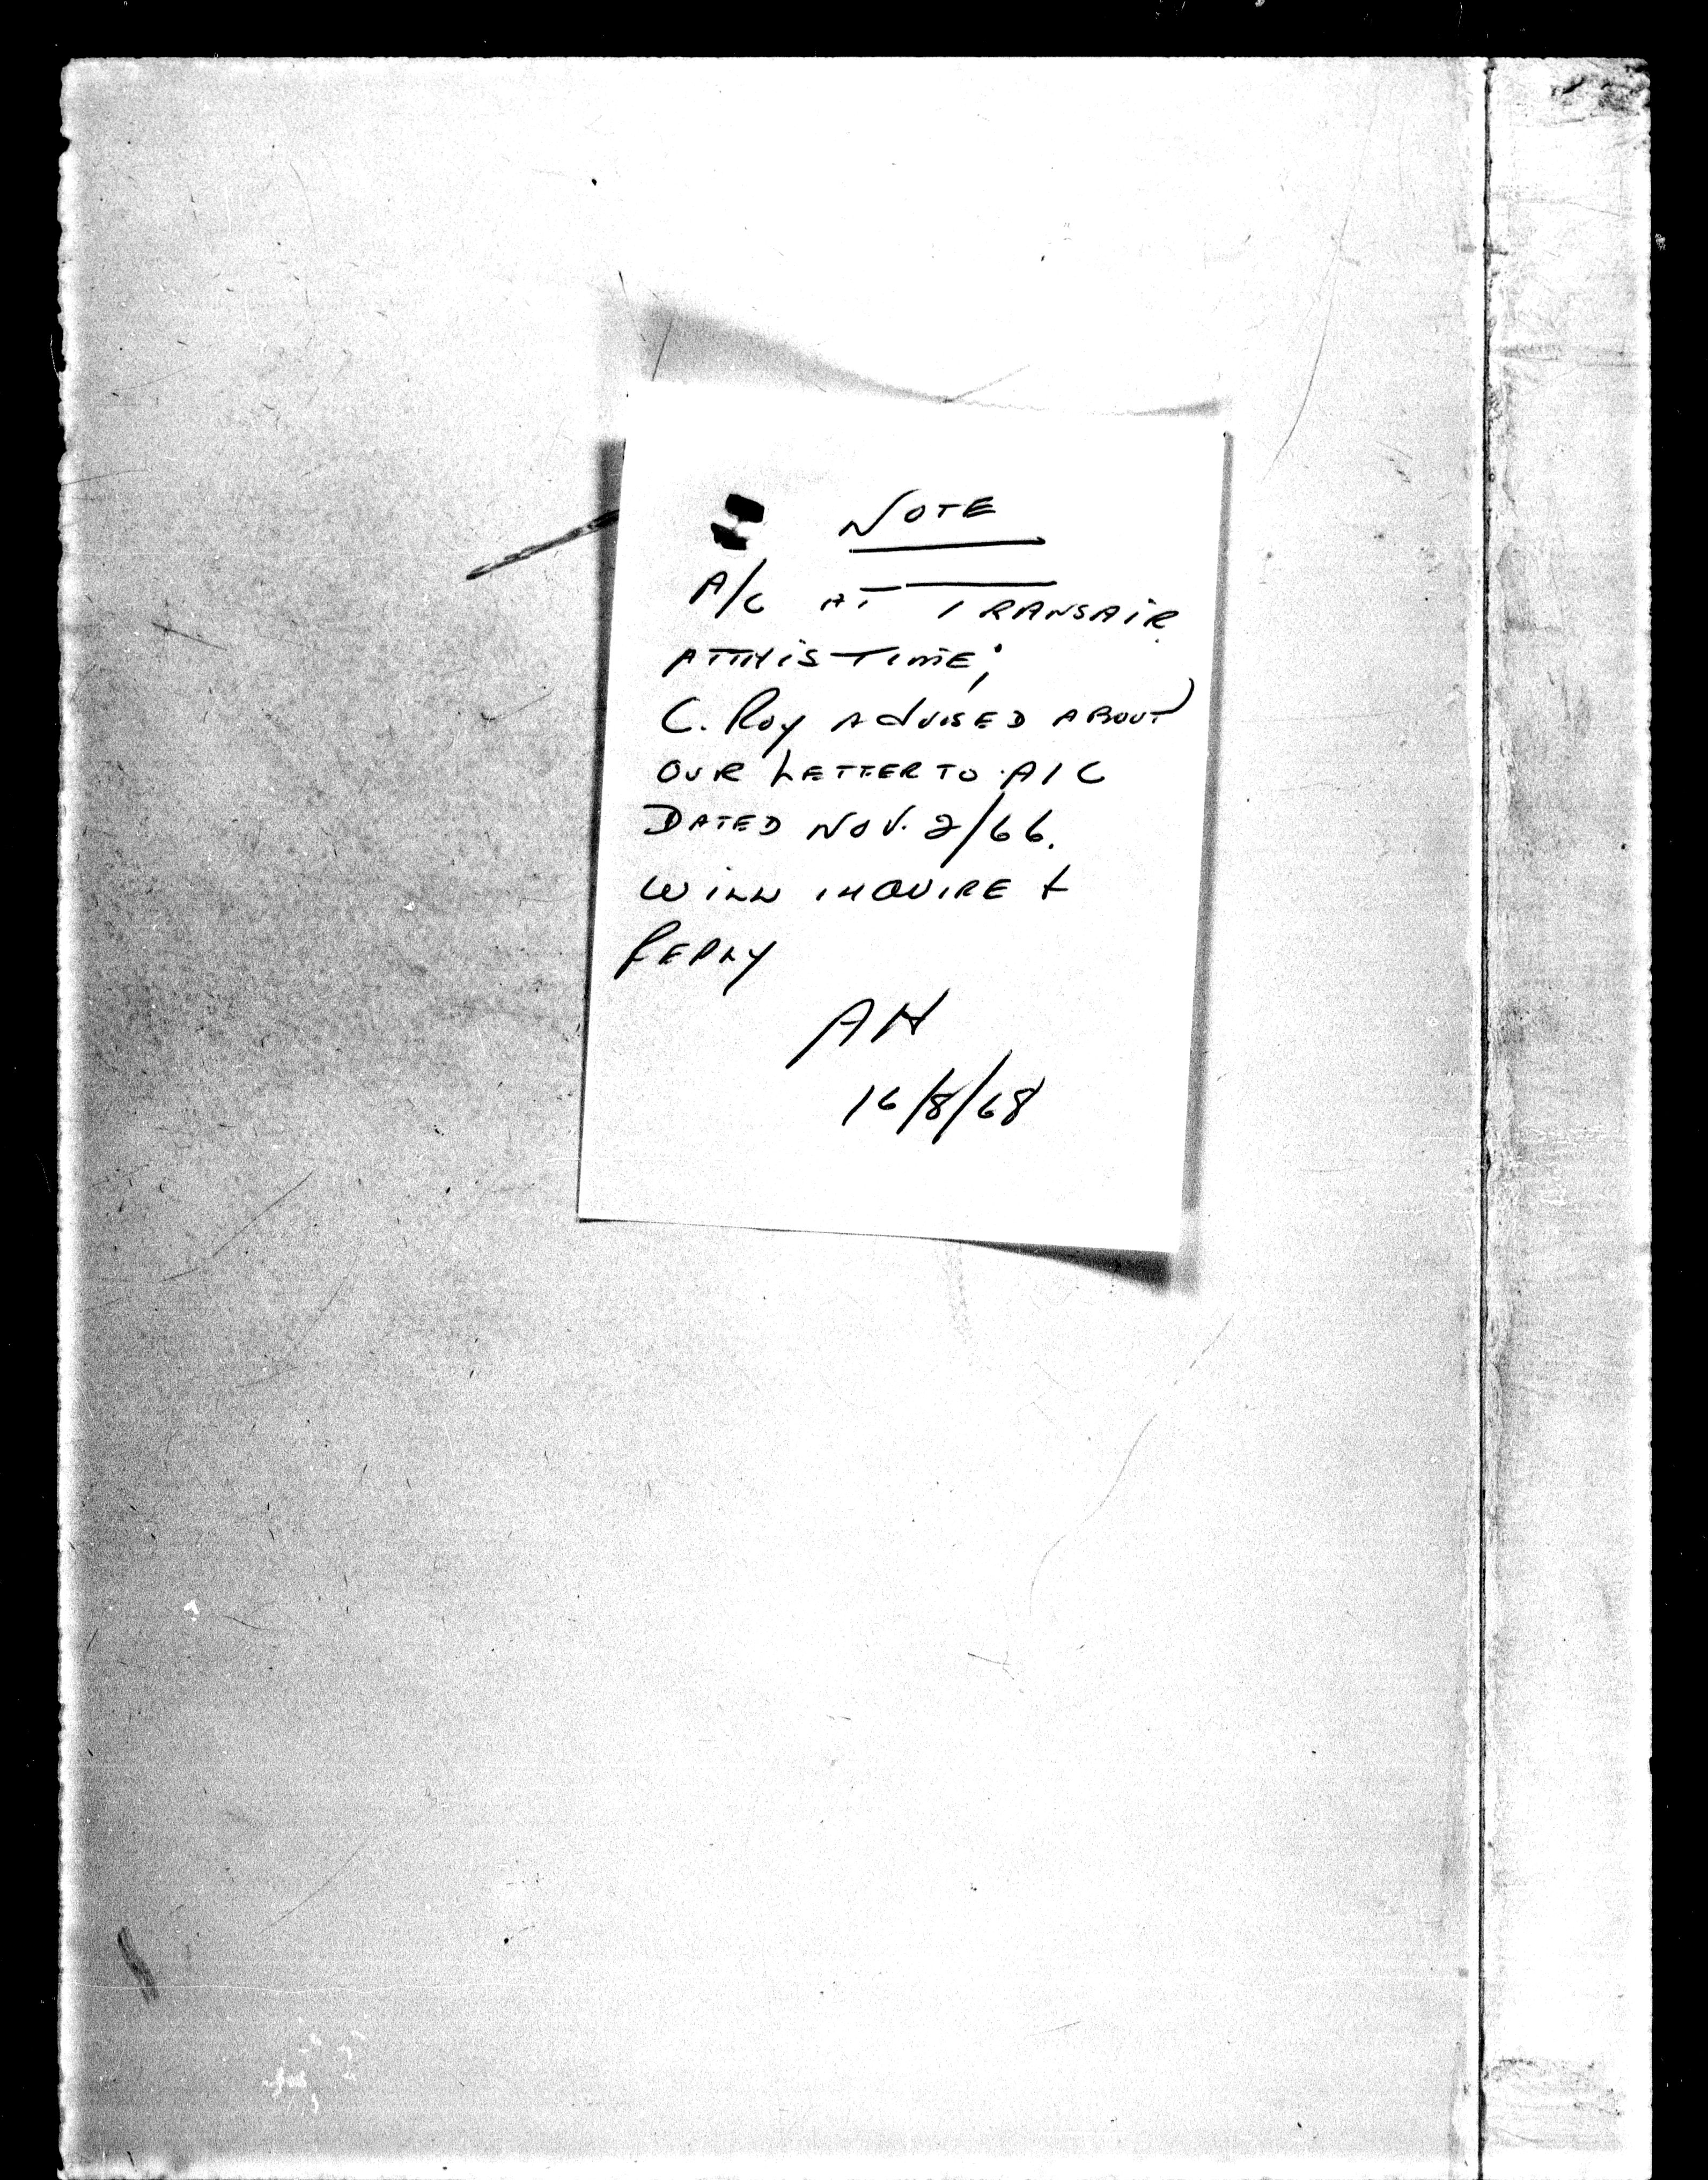 NOTE
A/C AT TRANSAIR
AT THIS TIME;
C. Roy ADVISED ABOUT
OUR LETTER TO A/C
DATED NOV. 2/66.
WILL INQUIRE &
REPLY
AH
16/8/68